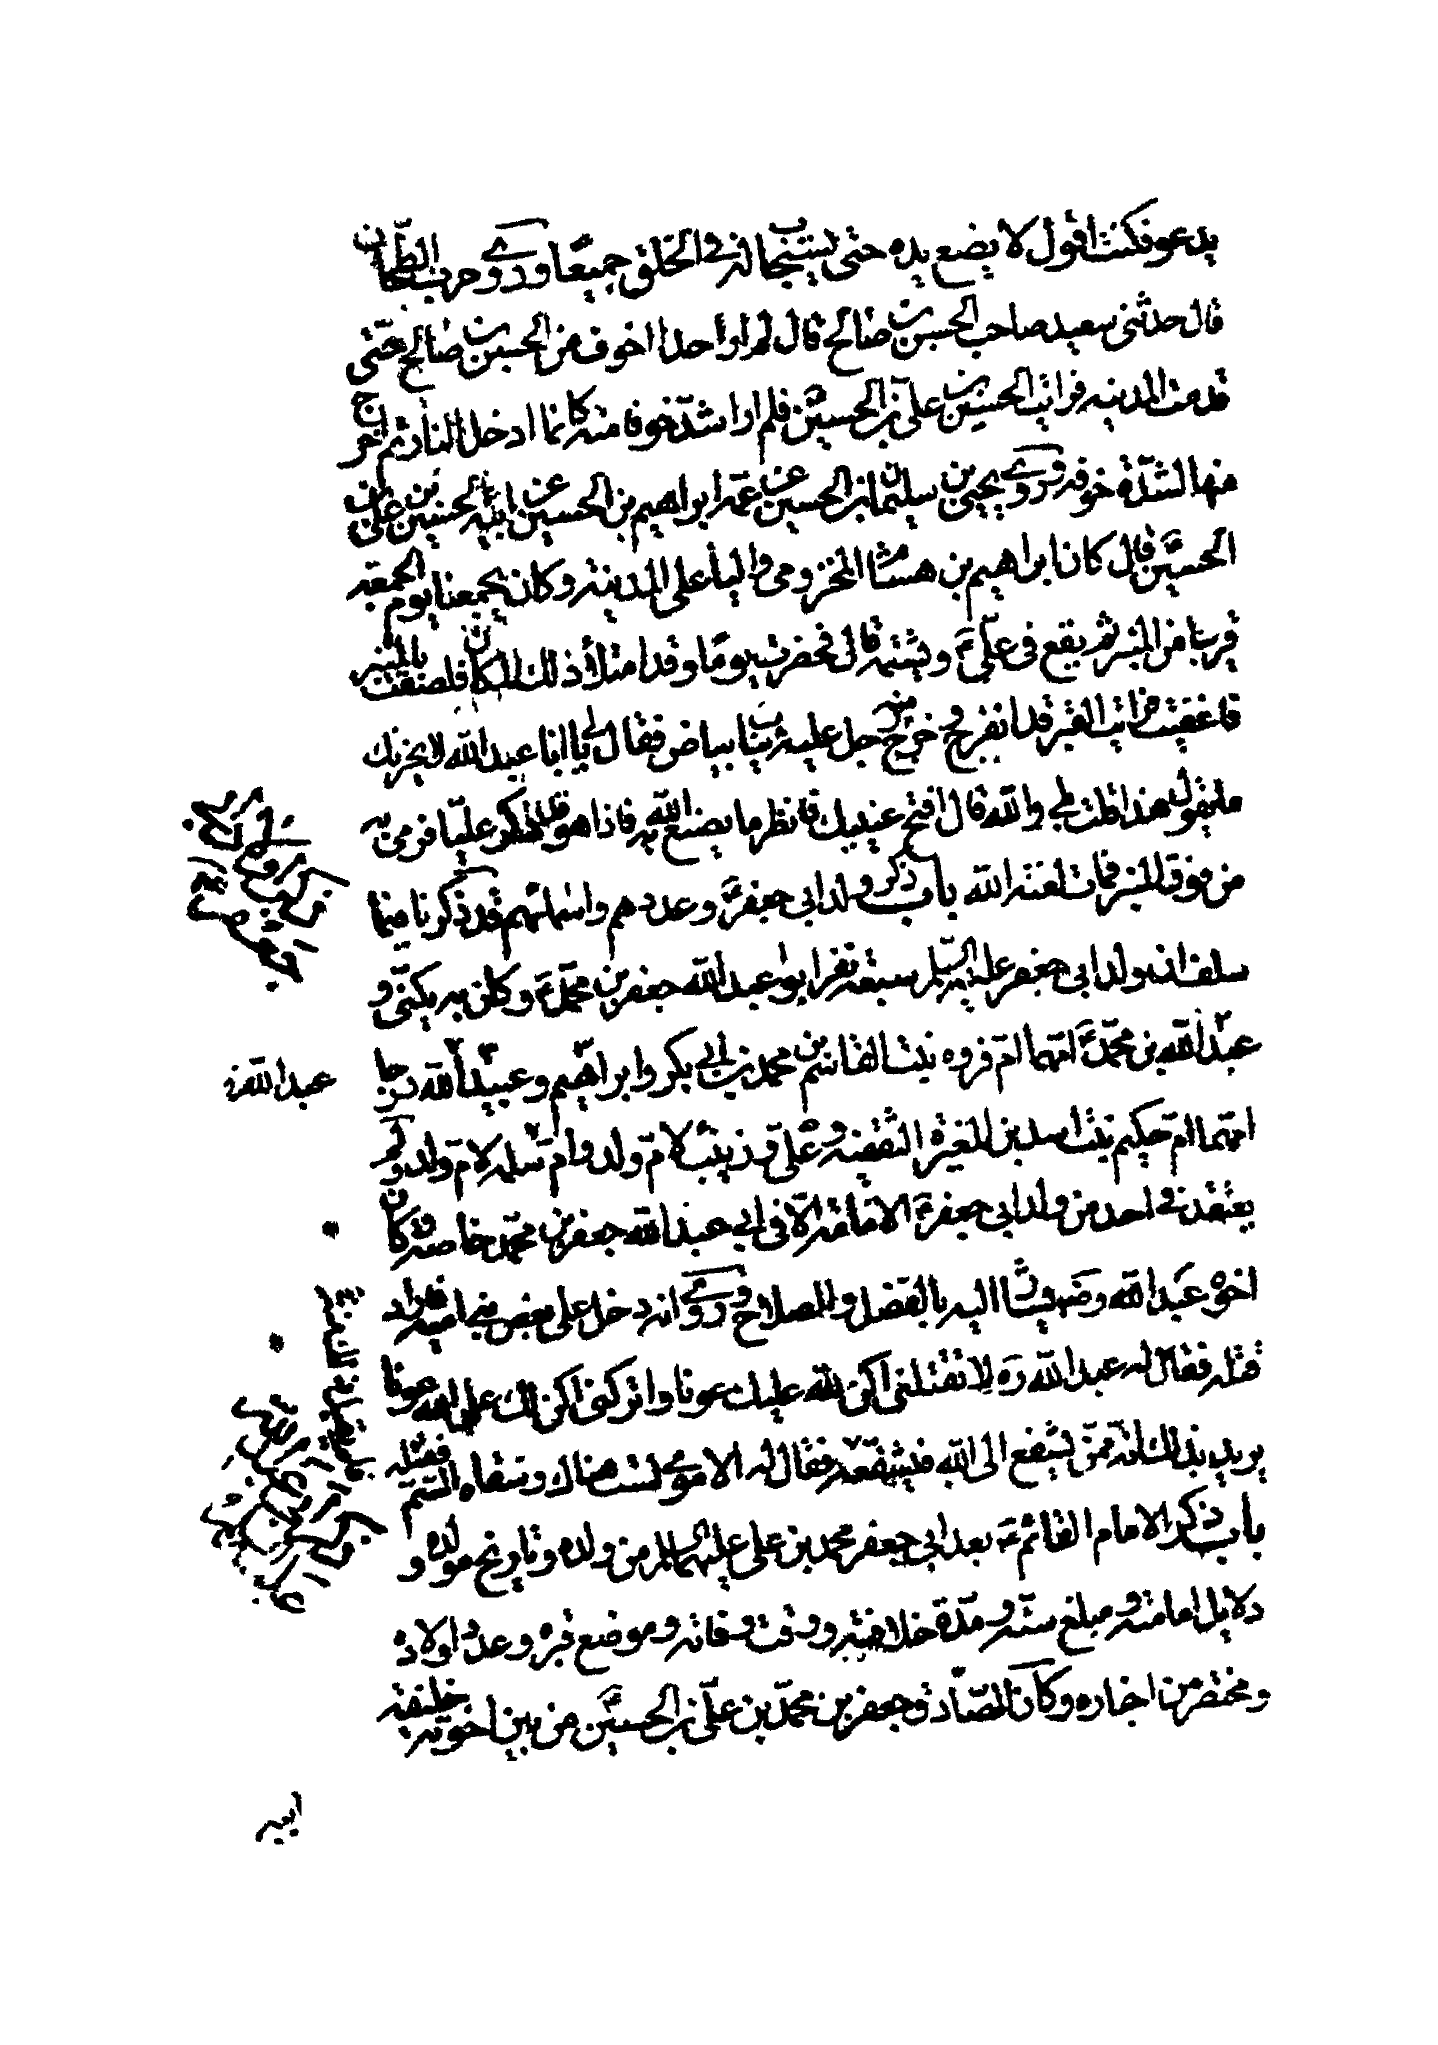 يدعو فكنت اقول لا يضع يده حتى يستجاب له في الخلق جميعًا وروى حرب الطحان
قال حدثنى سعيد صاحب الحسن بن صالح قال لم ار احدا اخوف من الحسن بن صالح حتى
قدمت المدينه فرايت الحسين بن على بن الحسين ع فلم ار اشد خوفا منه كانما ادخل النار ثم اخرج
منها لشدة خوفه وروى يحيى بن سليمان بن الحسين عن عمه ابراهيم بن الحسين عن ابيه الحسين بن على بن
الحسين ع قال كان ابراهيم بن هشام المخزومى واليا على المدينة وكان يجمعنا يوم الجمعة
قريبا من المنبر ثم يقع فى على ع ويشتمه قال فحضرت يوما وقد امتلأ ذلك المكان فلصقت بالمنبر
فاغفيت فرايت القبر قد انفرج وخرج منه رجل عليه ثياب بياض فقال لى يا ابا عبد الله الا يحزنك
ما يقول هذا قلت بلى والله قال افتح عينيك فانظر ما يصنع الله به فاذا هو قد ذكر عليا فرمى به
من فوق المنبر فمات لعنه الله باب ذكر ولد ابى جعفر ع وعددهم واسمائهم قد ذكرنا فيما
سلف ان ولد ابى جعفر عليه السلم سبعة نفر ابو عبد الله جعفر بن محمد ع وكان به يكنى و
عبد الله بن محمد ع امهما ام فروه بنت القاسم بن محمد بن ابى بكر وابراهيم وعبيد الله درجا
امهما ام حكيم بنت اسد بن المغيرة الثقفية وعلى وزينب لام ولد وام سلمه لام ولد ولم
يعتقد في احد من ولد ابى جعفر ع الامامة الا فى ابى عبد الله جعفر بن محمد خاصة وكان
اخوه عبد الله رضه يشار اليه بالفضل والصلاح وروى انه دخل على بعض بنى اميه فاراد
قتله فقال له عبد الله ره لا تقتلنى اكن لله عليك عونا واتركنى اكن لك على الله عونا
يريد بذلك انه ممن يشفع الى الله فيشفعه فقال له الاموى لست هناك وسقاه السم فقتله
باب ذكر الامام القائم ع بعد ابى جعفر محمد بن على عليهما السلم من ولده وتاريخ مولده و
دلايل امامته ومبلغ سنه ومدة خلافته ووقت وفاته وموضع قبره وعدد اولاده
ومختصر من اخباره وكان الصادق جعفر بن محمد بن على بن الحسين ع من بين اخوته خليفة
عبد الله بن
ابيه